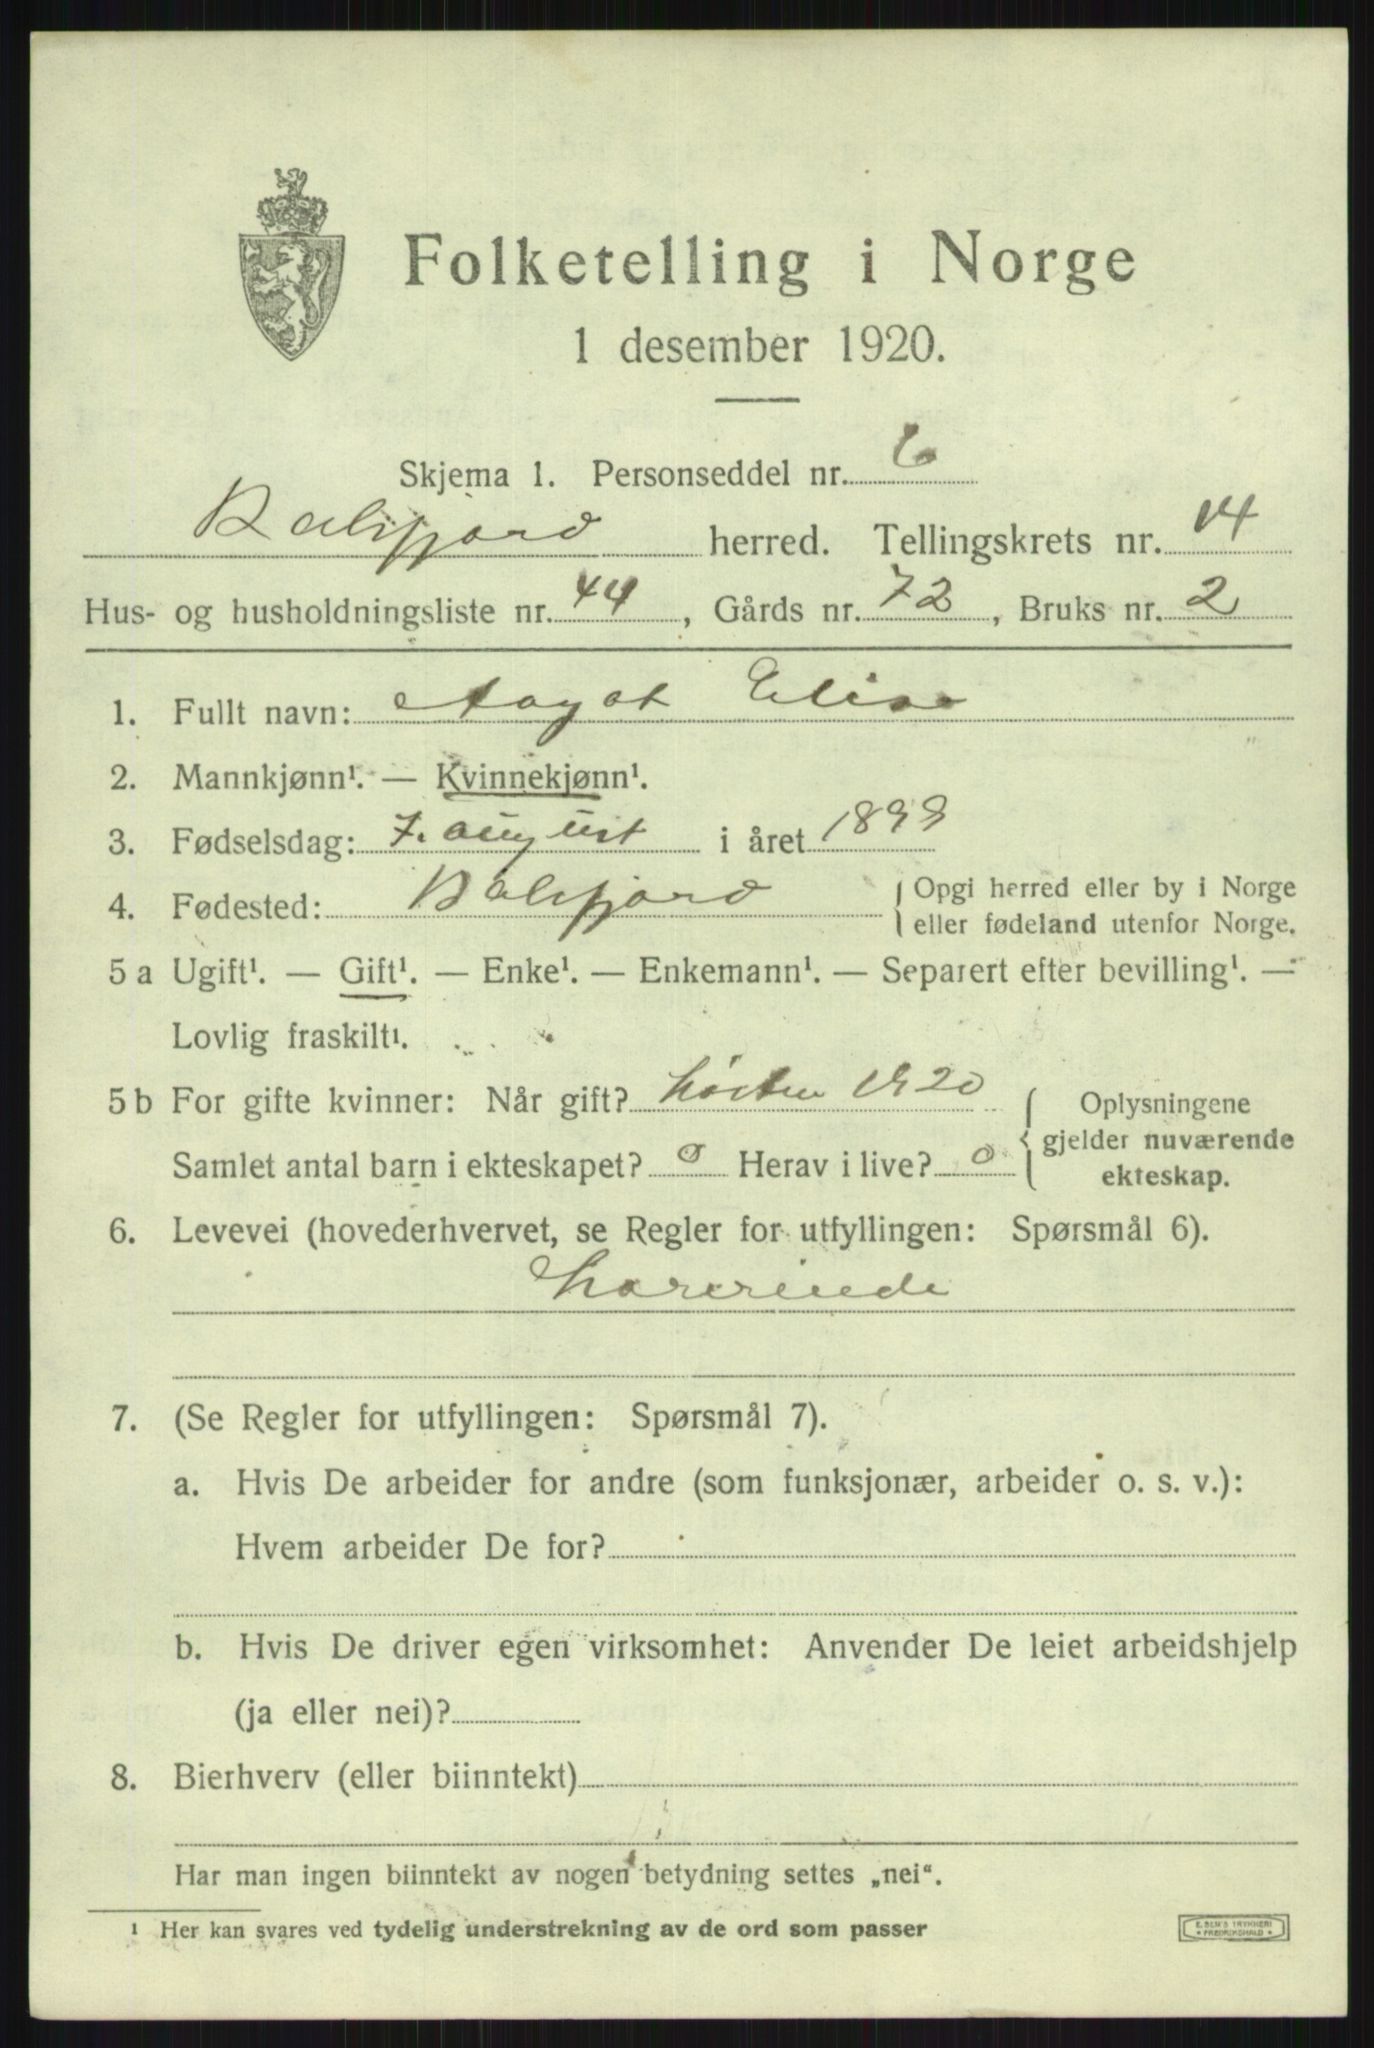 Folketelling i Norge
1 desember 1920.
Skjema 1. Personseddel nr. 6
Balsfjord herred. Tellingskrets nr. 14
Hus- og husholdningsliste nr. 44, Gårds nr. 72, Bruks nr. 2
1. Fullt navn: Aagot Elise
2. Mannkjønn¹. — Kvinnekjønn¹.
3. Fødselsdag: 7. august i året 1899
4. Fødested: Balsfjord { Opgi herred eller by i Norge
eller fødeland utenfor Norge.
5 a Ugift¹. — Gift¹. — Enke¹. — Enkemann¹. — Separert efter bevilling¹. —
Lovlig fraskilt¹.
5 b For gifte kvinner: Når gift? høsten 1920
Samlet antal barn i ekteskapet? 0 Herav i live? 0
{ Oplysningene
gjelder nuværende
ekteskap.
6. Levevei (hovederhvervet, se Regler for utfyllingen: Spørsmål 6).
7. (Se Regler for utfyllingen: Spørsmål 7).
a. Hvis De arbeider for andre (som funksjonær, arbeider o. s. v.):
Hvem arbeider De for?
b. Hvis De driver egen virksomhet: Anvender De leiet arbeidshjelp
(ja eller nei)?
8. Bierhverv (eller biinntekt)
Har man ingen biinntekt av nogen betydning settes „nei“.
¹ Her kan svares ved tydelig understrekning av de ord som passer
E. SEM'S TRYKKERI
* FREDRIKSHALD *